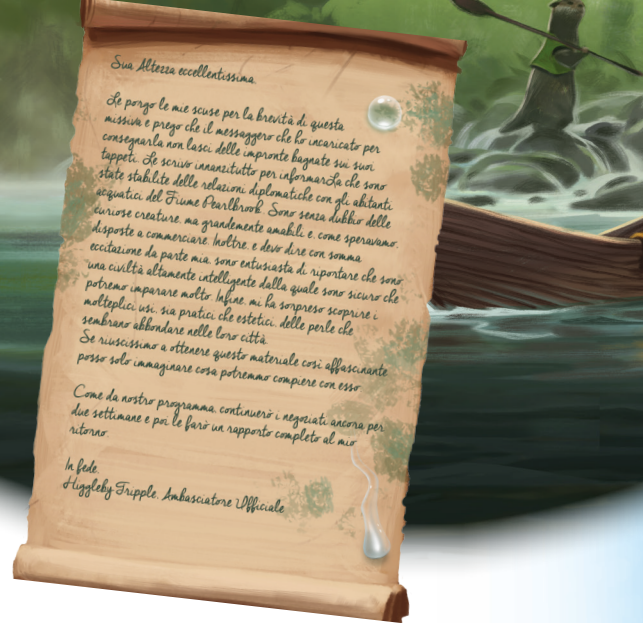 Sua Altezza eccellentissima.
Le porgo le mie scuse per la brevità di questa
missiva e prego che il messaggero che ho incaricato per
consegnarla non lasci delle impronte bagnate sui suoi
tappeti. Le scrivo innanzitutto per informarLa che sono
state stabilite delle relazioni diplomatiche con gli abitanti
acquatici del Fiume Pearlbrook. Sono senza dubbio delle
curiose creature, ma grandemente amabili e, come speravamo,
disposte a commerciare. Inoltre, e devo dire con somma
eccitazione da parte mia, sono entusiasta di riportare che sono
una civiltà altamente intelligente dalla quale sono sicuro che
potremo imparare molto. Infine, mi ha sorpreso scoprire i
molteplici usi, sia pratici che estetici, delle perle che
sembrano abbondare nelle loro città.
Se riuscissimo a ottenere questo materiale così affascinante
posso solo immaginare cosa potremmo compiere con esso.
Come da nostro programma, continuerò i negoziati ancora per
due settimane e poi le farò un rapporto completo al mio
ritorno.
In fede,
Higgleby Tripple, Ambasciatore Ufficiale